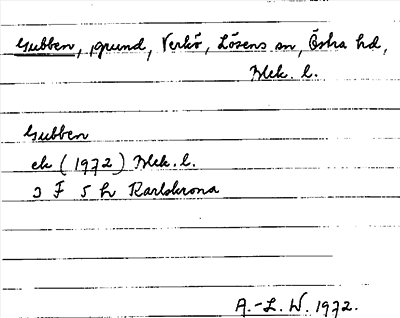 Gubben, grund, Verkö, Lösens sn, Östra hd,
Blek. l.
Gubben
ek (1972) Blek. l.
3 F 5 h Karlskrona
A.-L. W. 1972.